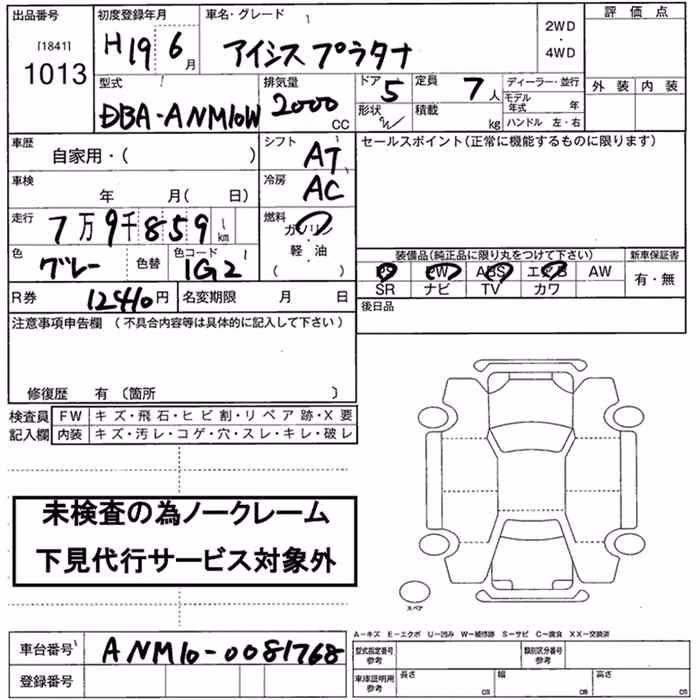 出品番号 初度登録年月 車名・グレード 評価点
[1841] 1013 H19 6月 アイシス プラタナ 2WD・4WD
外装 内装
型式 排気量 ドア 5 定員 7人 ディーラー・並行
DBA-ANM10W 2000 CC 形状 積載 kg モデル年式 年
ハンドル 左・右
車歴 シフト セールスポイント(正常に機能するものに限ります)
自家用・( ) AT
車検 冷房
年 月( 日) AC
走行 7万9千859 km 燃料
ガソリン
軽・油
( )
色 グレー 色替 色コード 1G2
装備品(純正品に限り丸をつけて下さい) 新車保証書
PS PW ABS エアB AW 有・無
SR ナビ TV カワ
R券 12410円 名変期限 月 日 後日品
注意事項申告欄 (不具合内容等は具体的に記入して下さい)
修復歴 有 (箇所 )
検査員 FW キズ・飛石・ヒビ割・リペア跡・X要
記入欄 内装 キズ・汚レ・コゲ・穴・スレ・キレ・破レ
未検査の為ノークレーム
下見代行サービス対象外
スペア
A-キズ E-エクボ U-凹み W-補修跡 S-サビ C-腐食 XX-交換済
車台番号 ANM10-0081768 型式指定番号 参考 類別区分番号 参考
登録番号 車庫証明用 参考 長さ cm 幅 cm 高さ cm